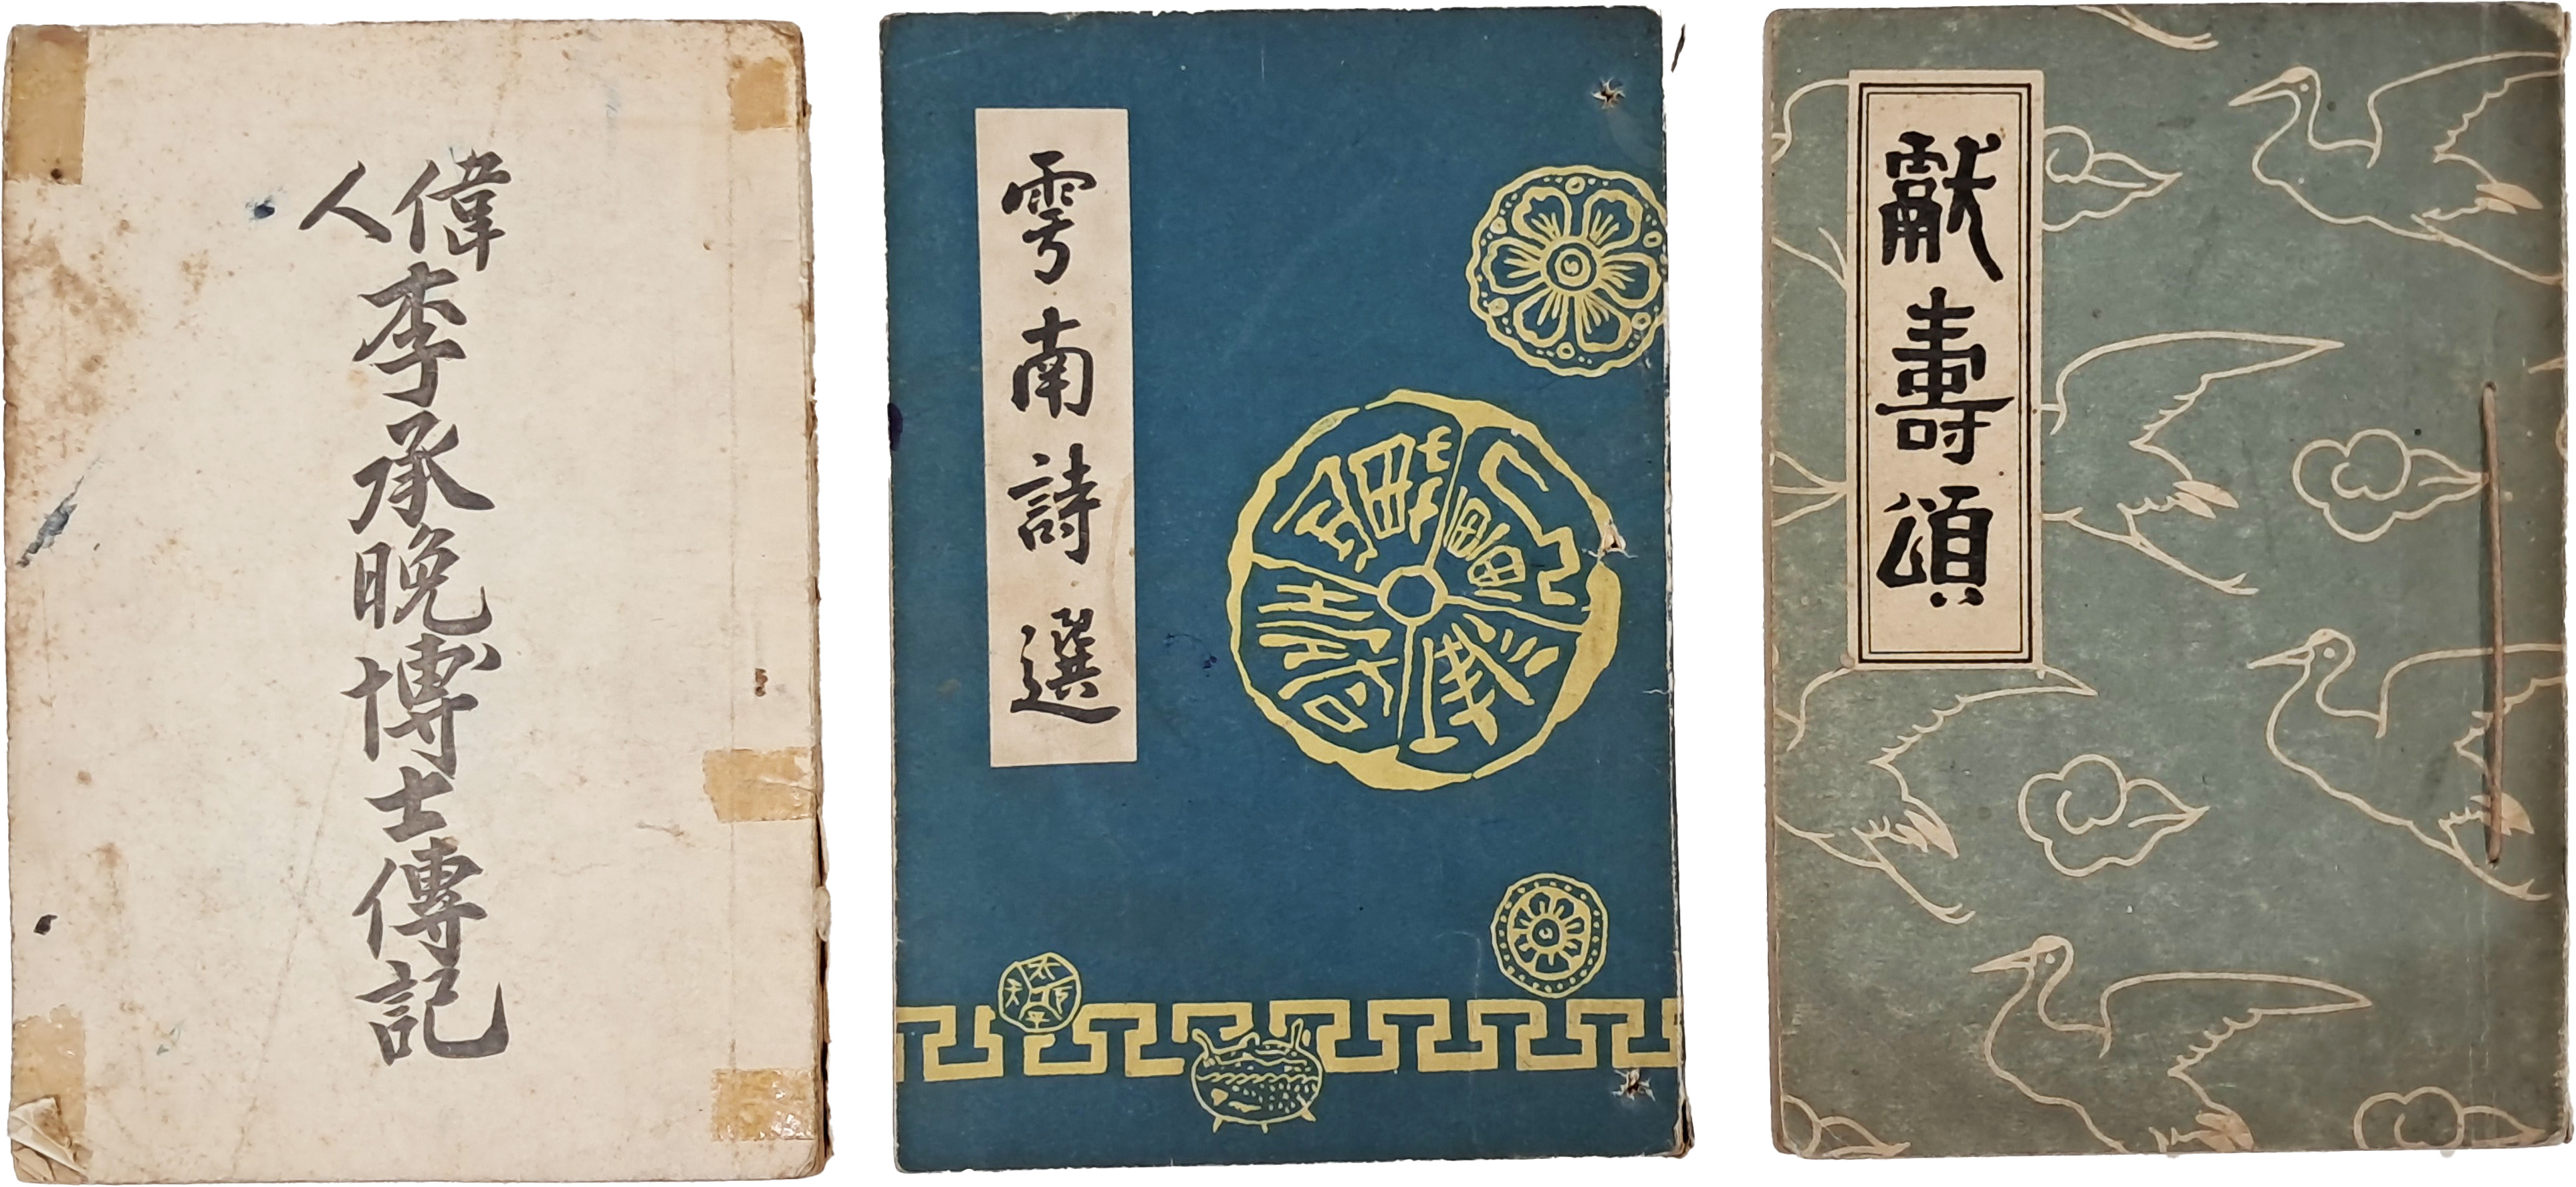 偉人
李承晩博士傳記
雩南詩選
太平
天下
獻壽頌